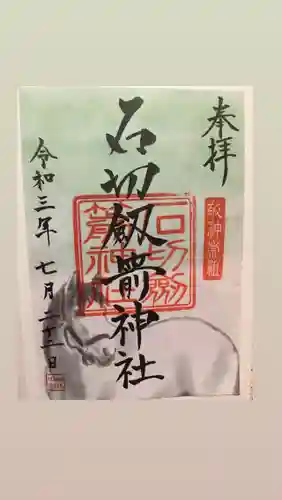 奉拝
敬神崇祖
石切劔箭神社
石切劔箭神社
令和三年七月二十二日